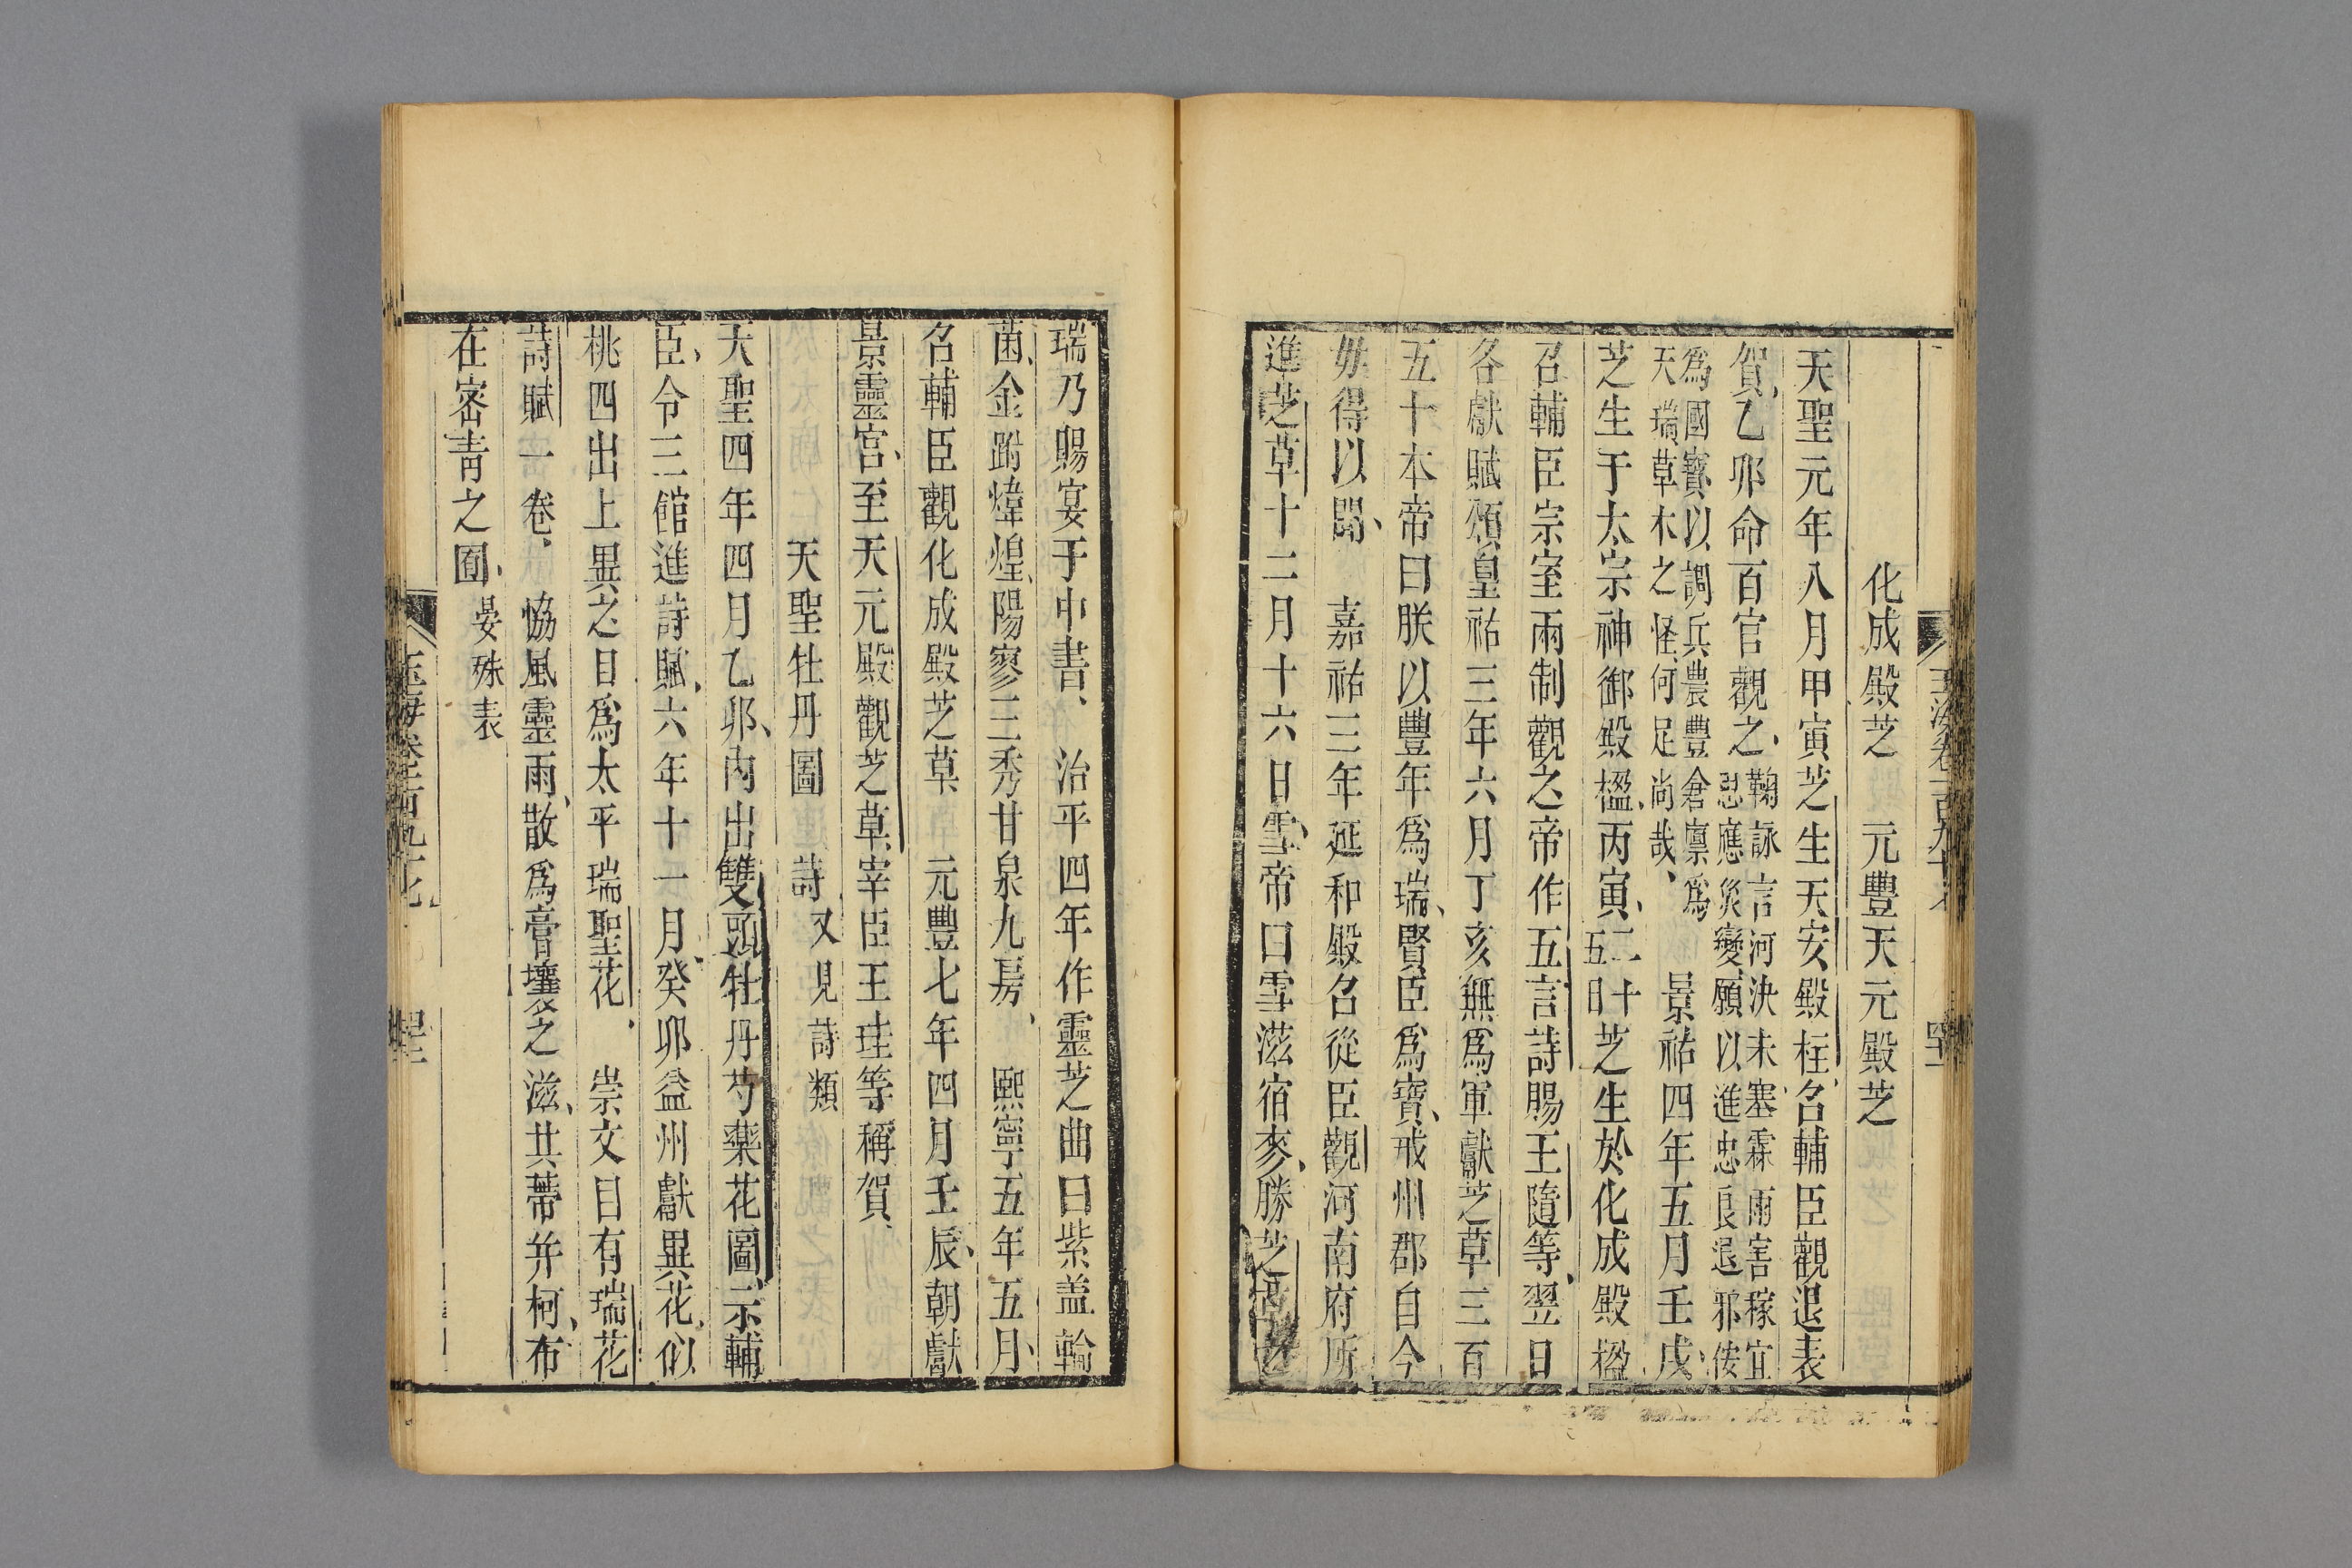 化成殿芝　元豐天元殿芝
天聖元年八月甲寅芝生天安殿柱召輔臣觀退表
賀乙卯命百官觀之鞠詠言河決未塞霖雨害稼宜
思應災變願以進忠良退邪佞
爲國寶以調兵農豐倉廩爲
天瑞草木之怪何足尚哉　景祐四年五月壬戌
芝生于太宗神御殿楹丙寅二十五日芝生於化成殿楹
召輔臣宗室兩制觀之帝作五言詩賜王隨等翌日
各獻賦頌皇祐三年六月丁亥無爲軍獻芝草三百
五十本帝曰朕以豐年爲瑞賢臣爲寶戒州郡自今
毋得以聞　嘉祐三年延和殿召從臣觀河南府所
進芝草十二月十六日雪帝曰雪滋宿麥勝芝
瑞乃賜宴于中書　治平四年作靈芝曲曰紫盖輪
菌金跗煒煌陽寥三秀甘泉九房　熙寧五年五月
名輔臣觀化成殿芝草　元豐七年四月壬辰朝獻
景靈宮至天元殿觀芝草宰臣王珪等稱賀
天聖牡丹圖　詩　又見詩類
天聖四年四月乙卯內出雙頭牡丹芍藥花圖示輔
臣令三館進詩賦六年十一月癸卯益州獻異花似
桃四出上異之目爲太平瑞聖花　崇文目有瑞花
詩賦一卷　協風靈雨散爲膏壤之滋共蔕并柯布
在密靑之囿　晏殊表
玉海卷一百九十七